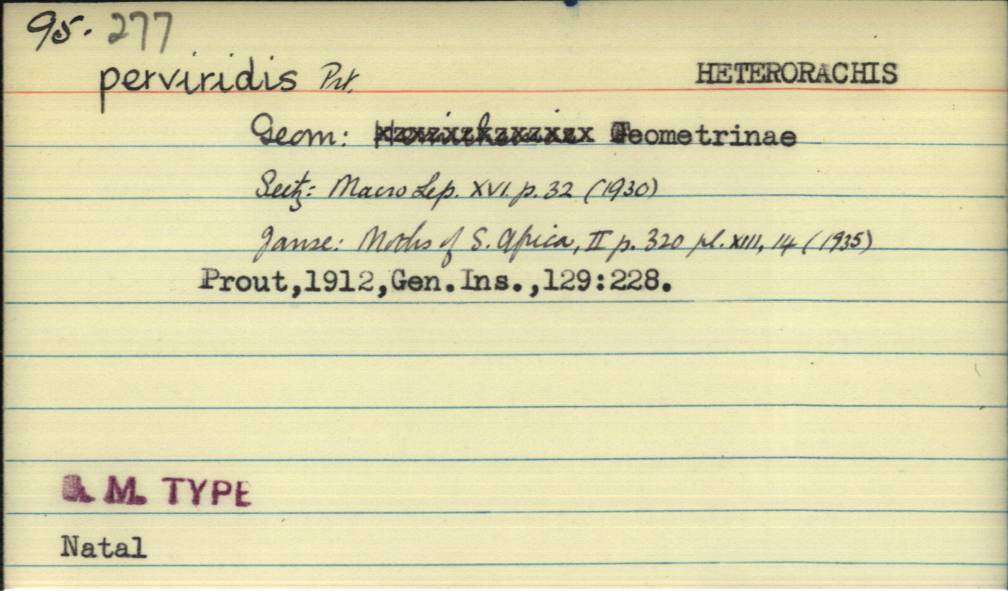 95. 277
perviridis Prt. HETERORACHIS
Geom: Geometrinae
Seitz: Macro Lep. XVI. p. 32 (1930)
Janse: Moths of S. Africa, II p. 320 pl. XIII, 14 (1935)
Prout,1912,Gen.Ins.,129:228.
B. M. TYPE
Natal